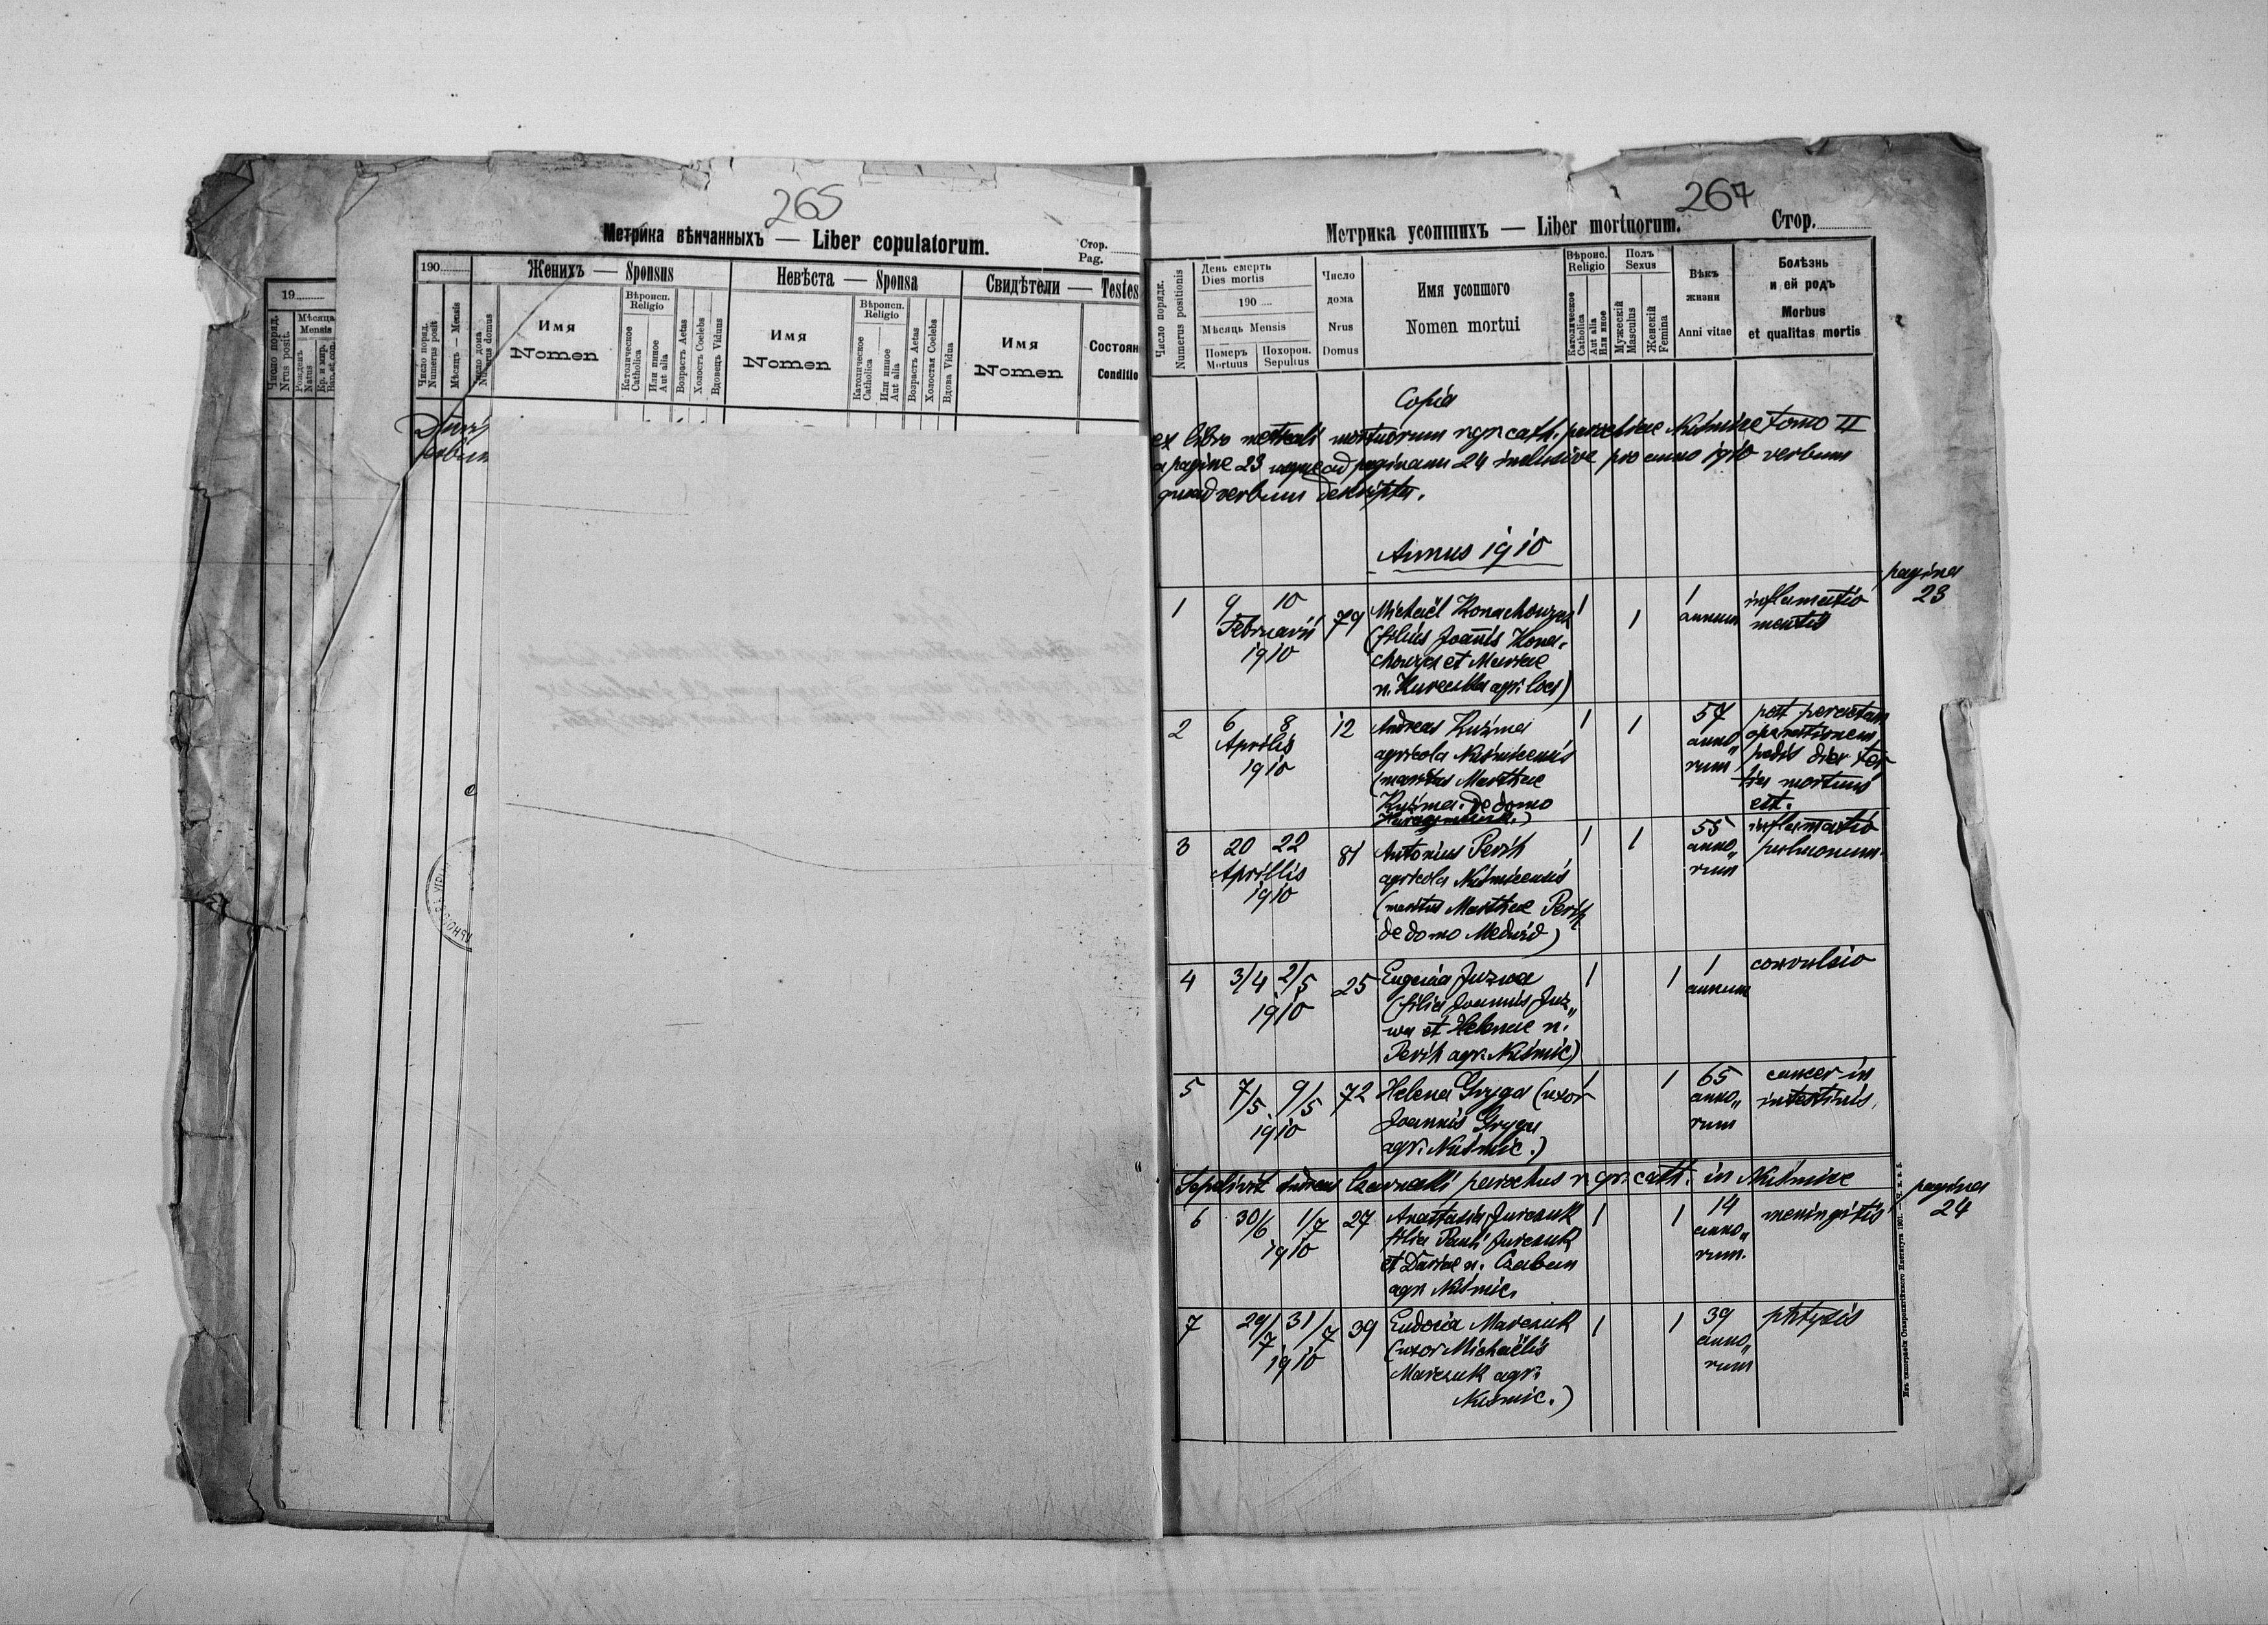 265
Метрика вѣнчанныхъ — Liber copulatorum.
Стор.
Pag.
19
Число поряд.
Nrus posit.
Мѣсяць
Mensis
Рожденъ
Natus
Кр. и мир.
Bap. et con.
190
Женихъ — Sponsus
Невѣста — Sponsa
Свидѣтели — Testes
Число поряд.
Numerus posit
Мѣсяць — Mensis
Число дома
Numerus domus
Имя
Nomen
Вѣроисп.
Religio
Католическое
Catholica
Или инное
Aut alia
Возрастъ Aetas
Холостъ Coelebs
Вдовець Viduus
Имя
Nomen
Вѣроисп.
Religio
Католическое
Catholica
Или инное
Aut alia
Возрастъ Aetas
Холостая Coelebs
Вдова Vidua
Имя
Nomen
Состоян
Conditio
267
Метрика усопшихъ — Liber mortuorum.
Стор.
Число порядк.
Numerus positionis
День смерть
Dies mortis
190
Мѣсяць Mensis
Померъ
Mortuus
Похорон.
Sepultus
Число
дома
Nrus
Domus
Имя усопшого
Nomen mortui
Вѣроис.
Religio
Католическое
Catholica
Aut alia
Или иное
Полъ
Sexus
Мужескій
Masculus
Женскій
Femina
Вѣкъ
жизни
Anni vitae
Болѣзнь
и ей родъ
Morbus
et qualitas mortis
Copia
ex libro metricali mortuorum r. gr. cath. parochiae Nuśmice Tomo II
a pagina 23 usque ad paginam 24 inclusive pro anno 1910 verbum
quoad verbum descripta.
Annus 1910
pagina
23
1 9 10 79 Michaël Konachowycz 1 1 1 inflamatio
Februarii annum mentis
1910 (filius Joannis Kona-
et Mariae
agr. loci)
2 6 8 12 Andreas Kuźma 1 1 57 post peractam
Aprilis agricola Nuśmicensis anno„ operationem
1910 (maritus Marthae rum pedis die ter-
Kuźma de domo tia mortuus
est.
3 20 22 81 Antonius Perih 1 1 55 inflamatio
Aprillis agricola Nuśmicensis anno„ pulmonum.
1910 (maritus Marthae Perih rum
de domo Medwid)
4 3/4 2/5 25 Eugenia Juzwa 1 1 1 convulsio
1910 (filia Joannis Juz„ annum
wa et Helenae n.
Perih agr. Nuśmic)
5 7/5 9/5 72 Helena Gryga (uxor 1 1 65 cancer in
1910 Joannis Gryga anno„ intestinis.
agr. Nuśmic.) rum
Sepelivit Andreas Czarnecki parochus r. gr. cath. in Nuśmice
pagina
24
6 30/6 1/7 27 Anastasia Jurczuk 1 1 14 meningitis
1910 filia Pauli Jurczuk anno„
et Dariae n. Czaban rum.
agr. Nuśmic.
7 29/7 31/7 39 Eudocia Marczuk 1 1 39 phtysis
1910 (uxor Michaëlis anno„
Marczuk agr. rum
Nuśmic.)